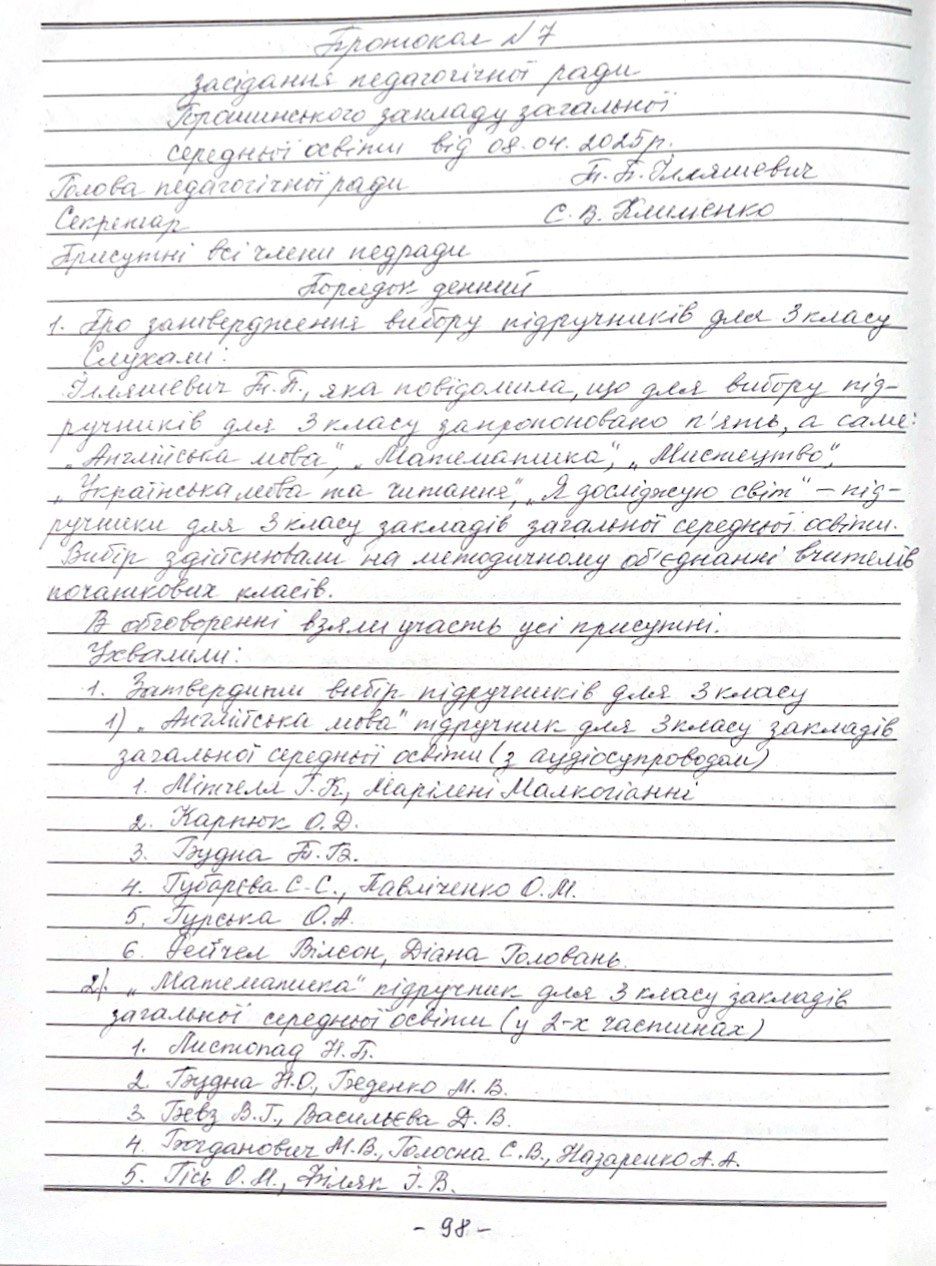 Протокол №7
засідання педагогічної ради
Порошинського закладу загальної
середньої освіти від 08.04.2025р.
Голова педагогічної ради Т.П.Ілляшевич
Секретар С.В.Клименко
Присутні всі члени педради
Порядок денний
1. Про затвердження вибору підручників для 3 класу
Слухали:
Ілляшевич Т.П., яка повідомила, що для вибору під-
ручників для 3 класу запропоновано п'ять, а саме:
„Англійська мова", „Математика", „Мистецтво",
„Українська мова та читання", „Я досліджую світ" – під-
ручники для 3 класу закладів загальної середньої освіти.
Вибір здійснювали на методичному об'єднанні вчителів
початкових класів.
В обговоренні взяли участь усі присутні.
Ухвалили:
1. Затвердити вибір підручників для 3 класу
1) „Англійська мова" підручник для 3 класу закладів
загальної середньої освіти (з аудіосупроводом)
1. Мітчелл Г.К, Марілені Малкогіанні
2. Карпюк О.Д.
3. Будна Т.Б.
4. Губарєва С.С., Павліченко О.М.
5. Гурська О.А.
6. Рейчел Вілсон, Діана Головань.
2). „Математика" підручник для 3 класу закладів
загальної середньої освіти (у 2-х частинах)
1. Листопад Н.П.
2. Будна Н.О., Беденко М.В.
3. Бевз В.Г., Васильєва Д.В.
4. Богданович М.В., Голосна С.В., Назаренко А.А.
5. Гісь О.М., Філяк І.В.
- 98 -